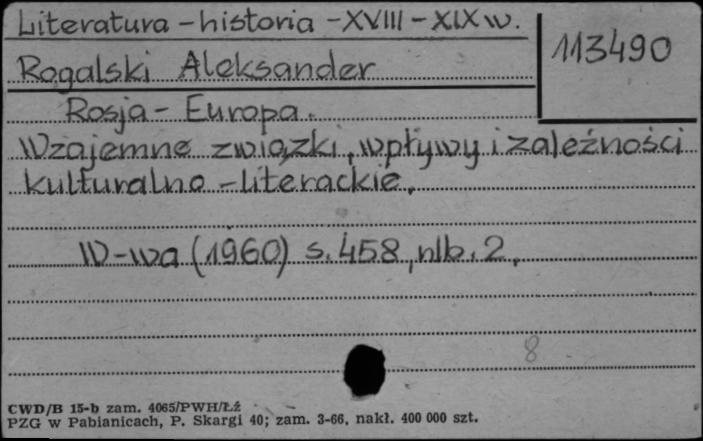 Literatura - historia - XVIII - XIX w.
113490
Rogalski Aleksander
Rosja - Europa.
Wzajemne związki, wpływy i zależności
kulturalno - literackie.
W-wa (1960) s. 458, nlb. 2.
8
CWD/B 15-b zam. 4065/PWH/Łź
PZG w Pabianicach, P. Skargi 40; zam. 3-66, nakł. 400 000 szt.